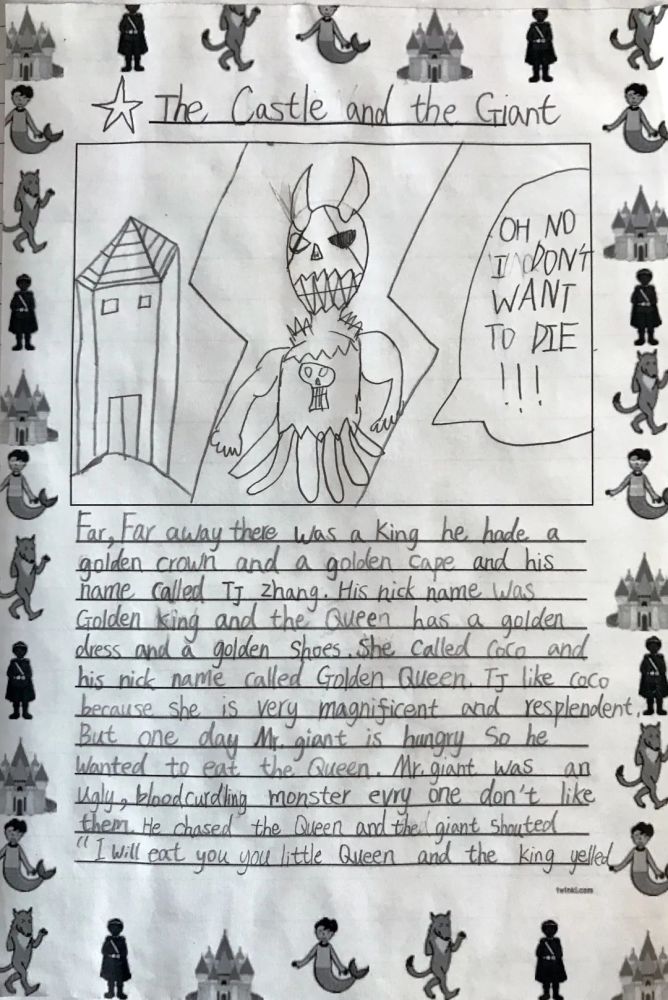 The Castle and the Giant
OH NO
I DON'T
WANT
TO DIE
!!!
Far, Far away there was a king he hade a
golden crown and a golden cape and his
name called TJ zhang. His nick name was
Golden king and the Queen has a golden
dress and a golden shoes. She called coco and
his nick name called Golden Queen. TJ like coco
because she is very magnificent and resplendent.
But one day Mr. giant is hungry So he
wanted to eat the Queen. Mr. giant was an
ugly, bloodcurdling monster evry one don't like
them. He chased the Queen and the giant shouted
"I will eat you you little Queen and the king yelled
twinkl.com